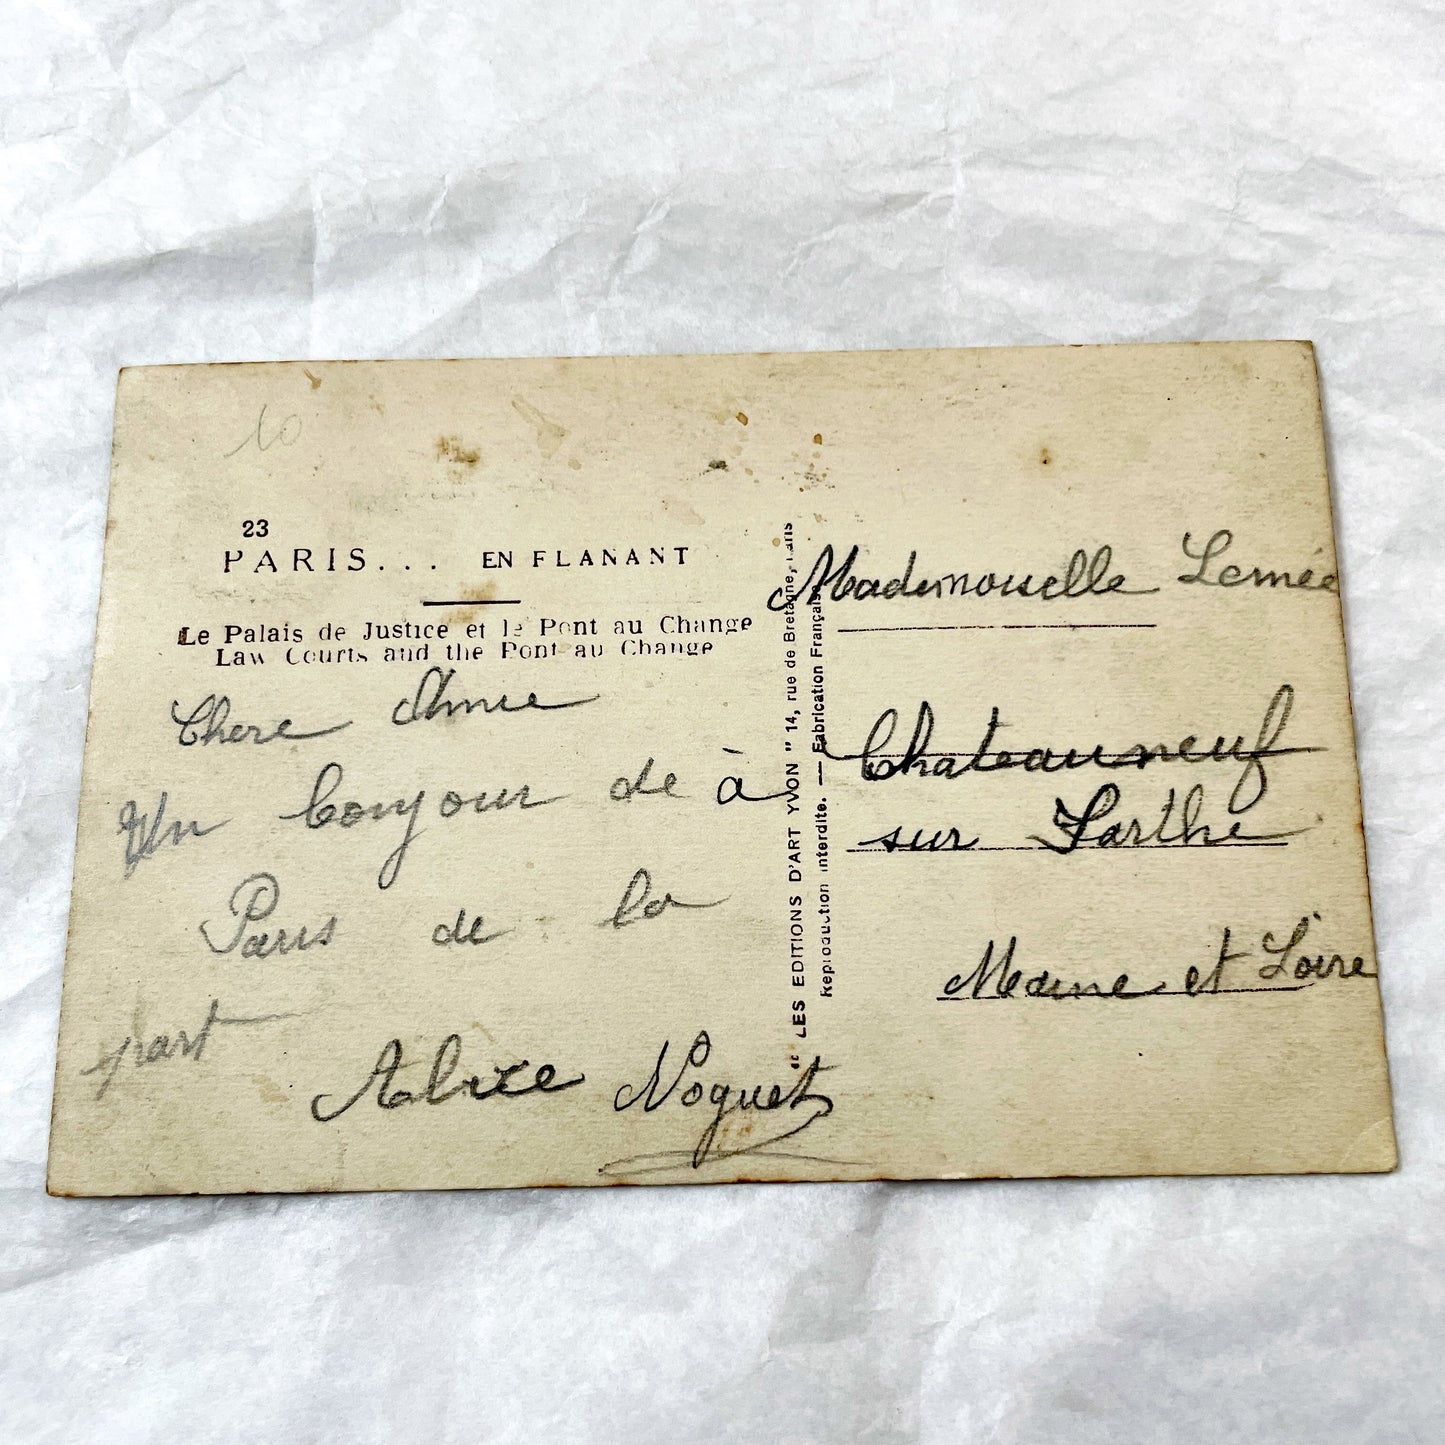 10
23
PARIS... EN FLANANT
Le Palais de Justice et le Pont au Change
Law Courts and the Pont au Change
Chere Amie
Un bonjour de
Paris de la
part
Alice Noguet
" LES EDITIONS D'ART YVON " 14, rue de Bretagne, Paris
Reproduction interdite. — Fabrication Française
Mademoiselle Lemée
à Chateauneuf
sur Sarthe
Maine et Loire